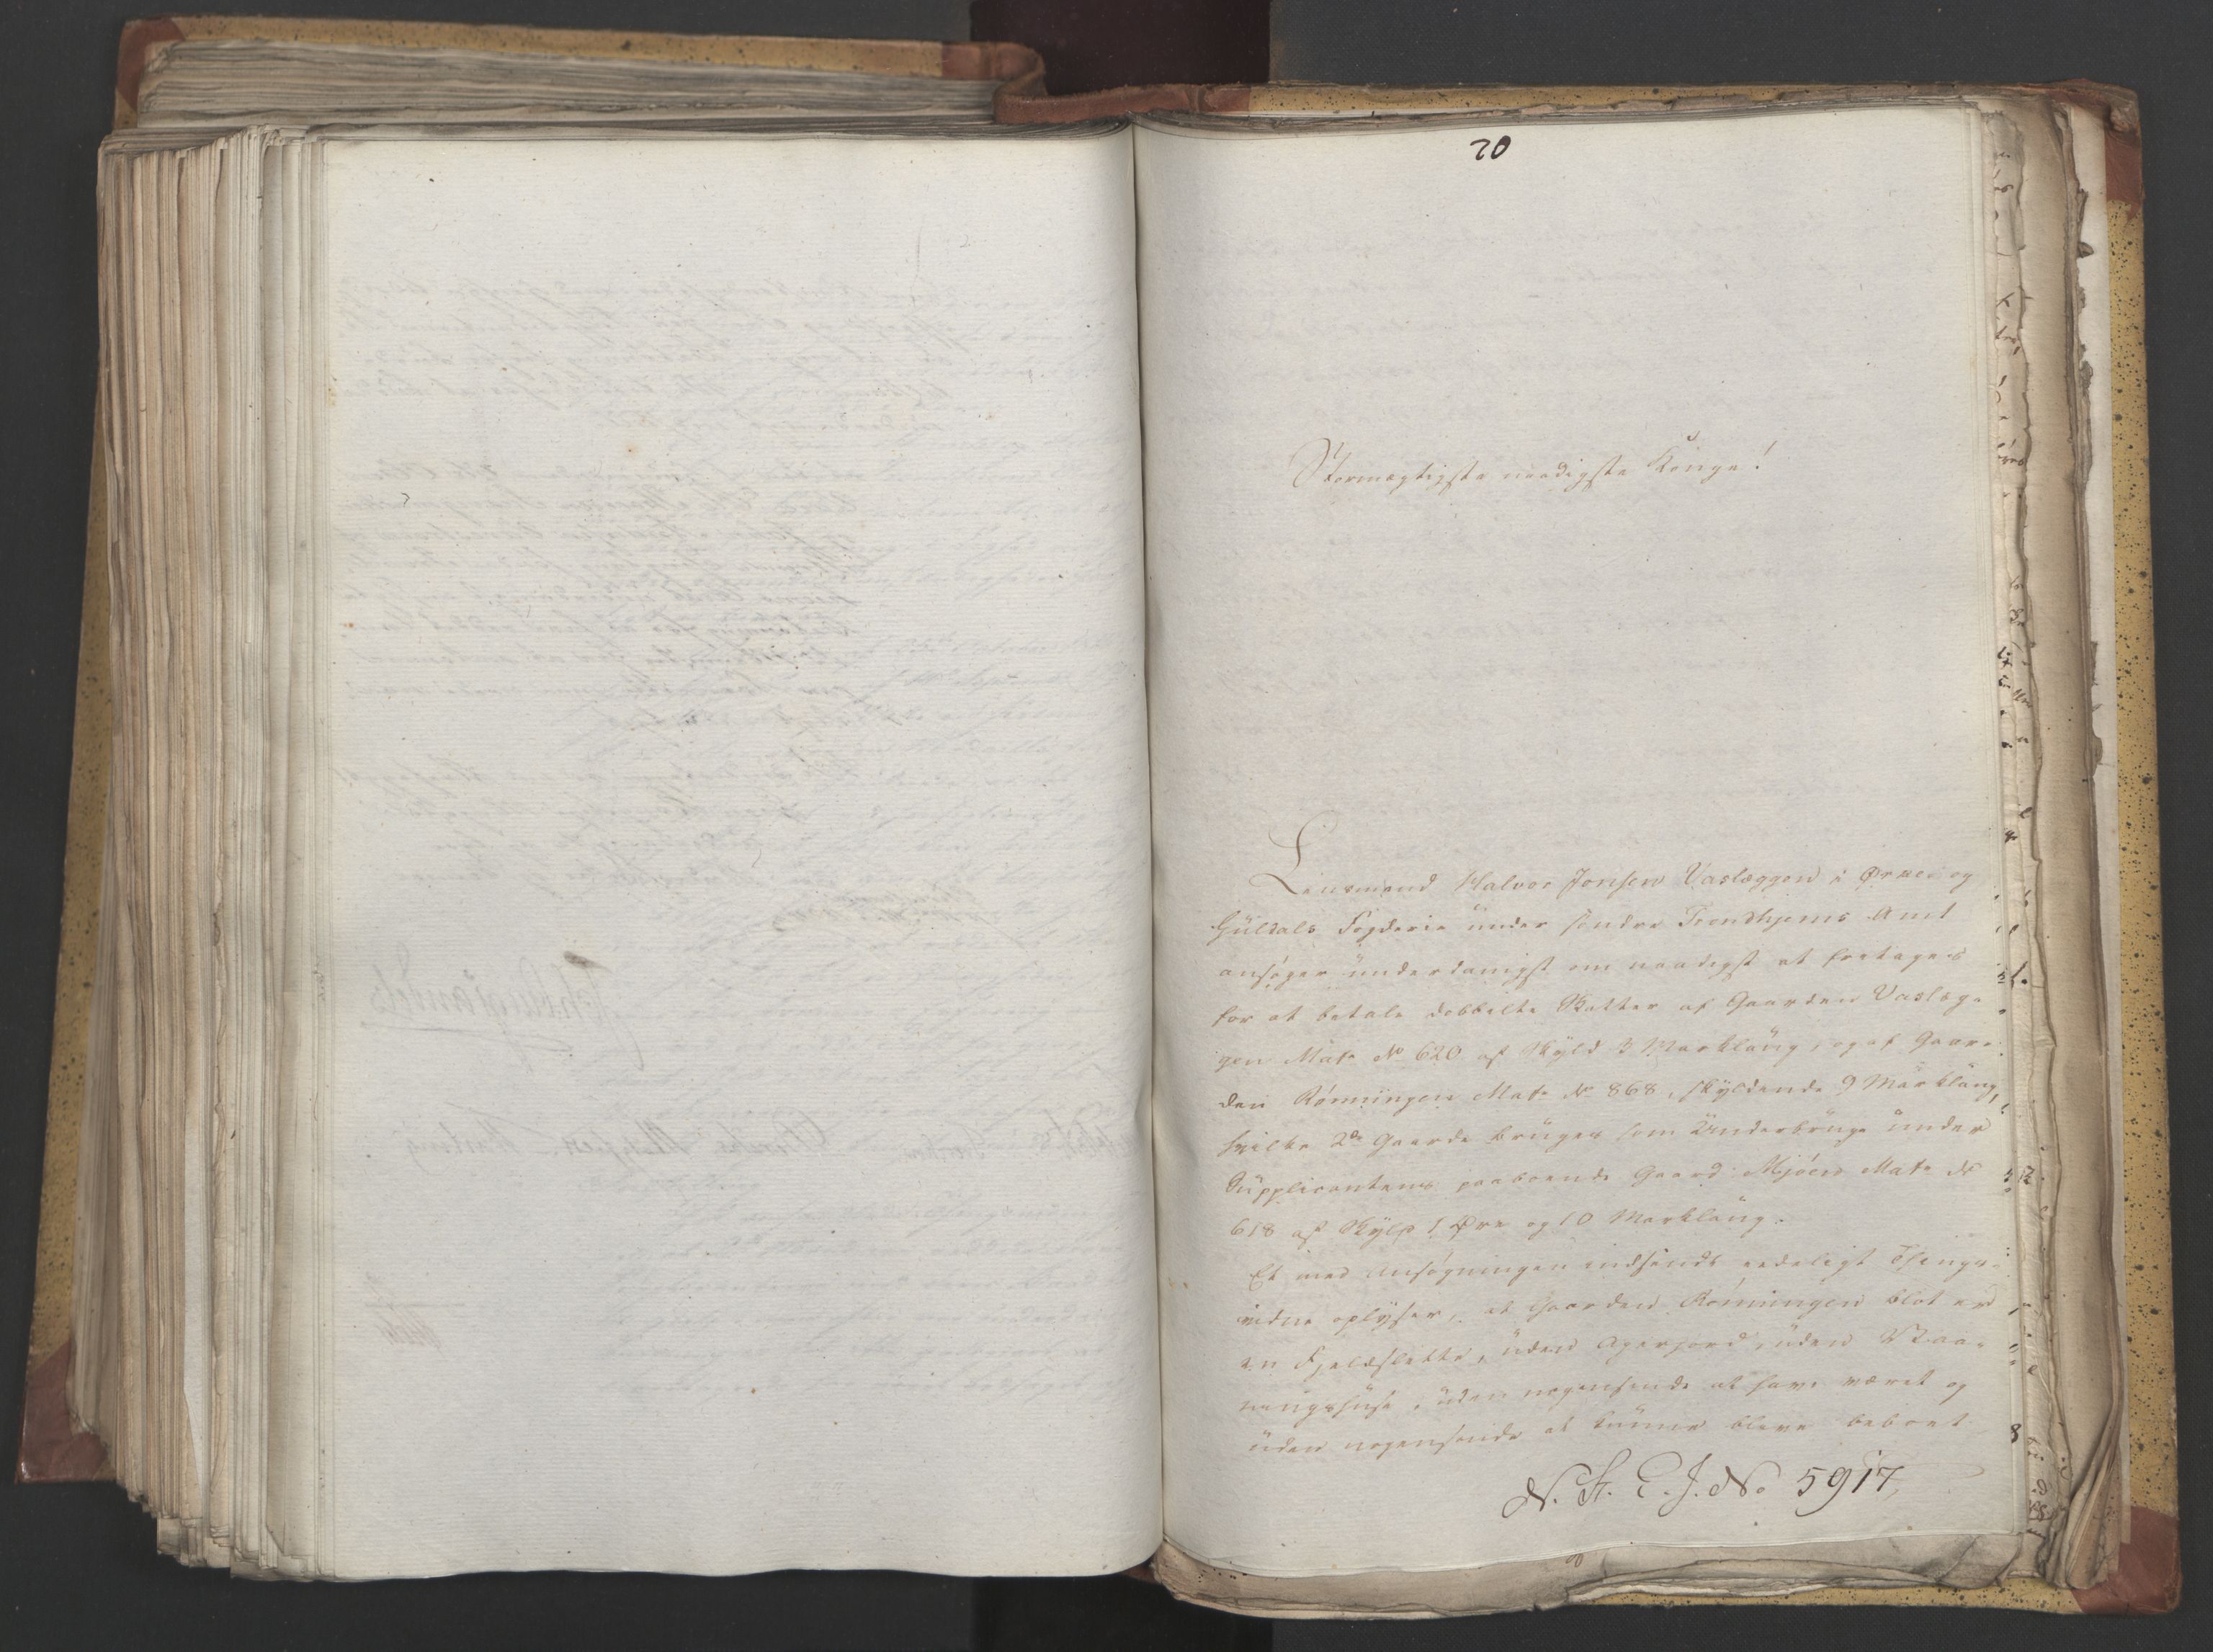 20
Stormægtigste naadigste Konge!
Lensmand Halvor Jonsen Vaslæggen i Ørke og
Guldals Fogderie under søndre Trondhjems Amt
ansøger underdanigst om naadigst at fritages
for at betale dobbelte Skatter af Gaarden Vaslæg-
gen Mat: No 620 af Skyld 3 Marklaug, og af Gaar-
den Rønningen Mat: No 868, skyldende 9 Marklaug,
hvilke 2de Gaarde bruges som Underbrug under
Supplicantens paaboende Gaard Mjøen Mat: No
618 af Skyld 1 Øre og 10 Marklaug.
Et med Ansøgningen indsendt edeligt Things-
vidne oplyser, at Gaarden Rønningen blot er
en Fjeldslette, uden Agerjord, uden Vaa-
ningshuse, uden nogensinde at have været og
uden nogensinde at kunne blive beboet
N. St. E. J. No 5917,